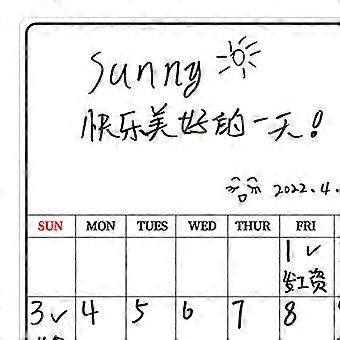 Sunny
快乐美好的一天!
2022.4.
SUN MON TUES WED THUR FRI
1 ✓
发工资
3 ✓ 4 5 6 7 8